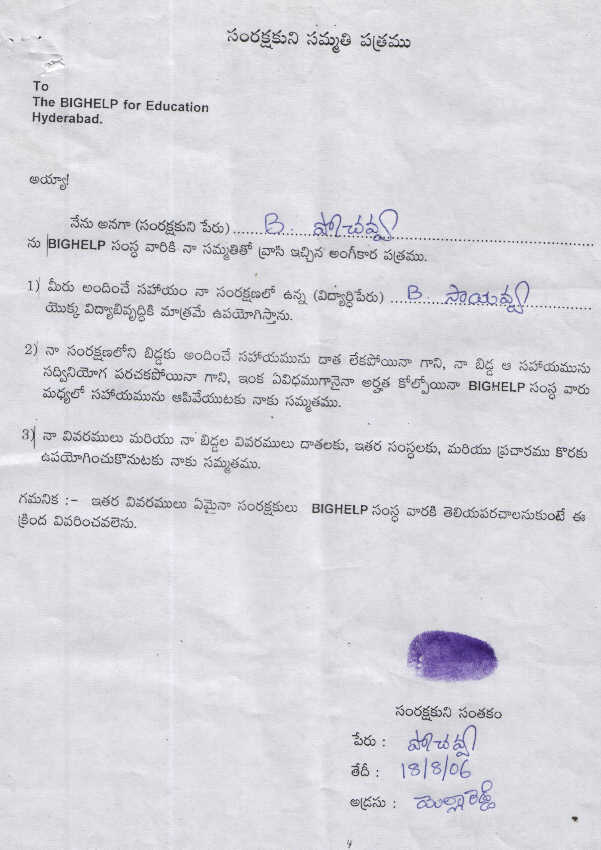 సంరక్షకుని సమ్మతి పత్రము
To
The BIGHELP for Education
Hyderabad.
అయ్యా!
నేను అనగా (సంరక్షకుని పేరు) ..... B. పోచవ్వ .....
ను BIGHELP సంస్ధ వారికి నా సమ్మతితో వ్రాసి ఇచ్చిన అంగీకార పత్రము.
1) మీరు అందించే సహాయం నా సంరక్షణలో ఉన్న (విద్యార్ధిపేరు) ... B. సాయవ్వ .....
యొక్క విద్యాబివృద్ధికి మాత్రమే ఉపయోగిస్తాను.
2) నా సంరక్షణలోని బిడ్డకు అందించే సహాయమును దాత లేకపోయినా గాని, నా బిడ్డ ఆ సహాయమును
సద్వినియోగ పరచకపోయినా గాని, ఇంక ఏవిధముగానైనా అర్హత కోల్పోయినా BIGHELP సంస్ధ వారు
మధ్యలో సహాయమును ఆపివేయుటకు నాకు సమ్మతము.
3) నా వివరములు మరియు నా బిడ్డల వివరములు దాతలకు, ఇతర సంస్ధలకు, మరియు ప్రచారము కొరకు
ఉపయోగించుకొనుటకు నాకు సమ్మతము.
గమనిక :- ఇతర వివరములు ఏమైనా సంరక్షకులు BIGHELP సంస్ధ వారకి తెలియపరచాలనుకుంటే ఈ
క్రింద వివరించవలెను.
సంరక్షకుని సంతకం
పేరు : పోచవ్వ
తేదీ : 18/8/06
అడ్రసు :